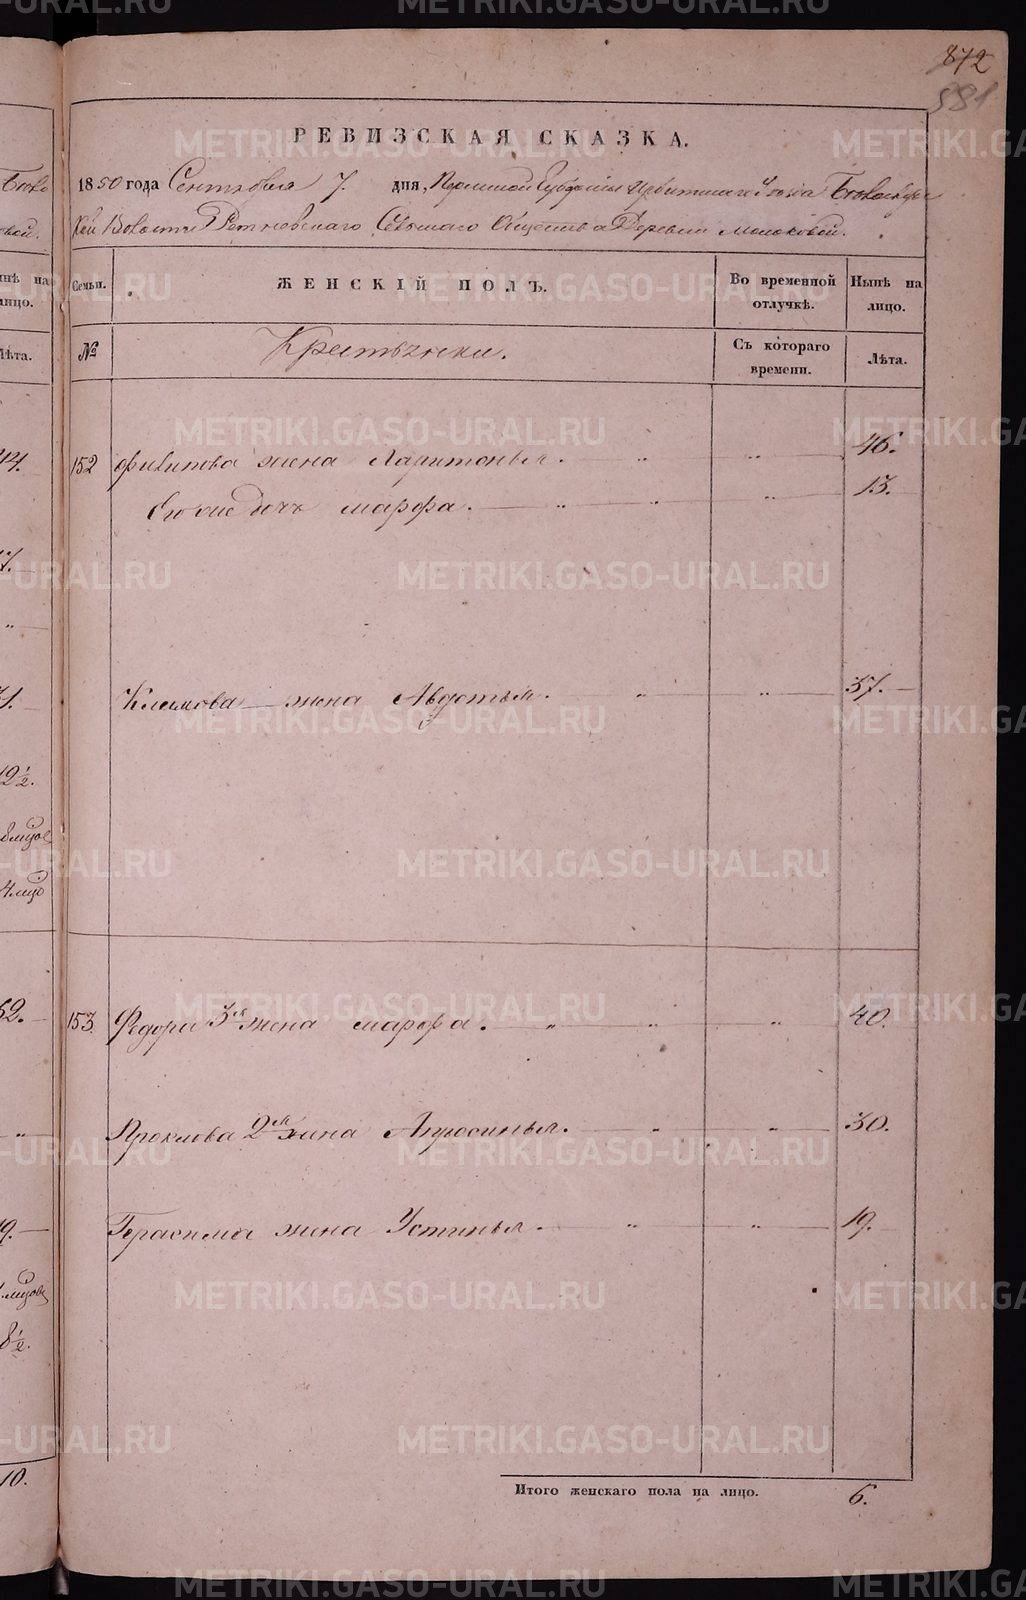 872
881
РЕВИЗСКАЯ СКАЗКА.
1850 года Сентября 7. дня, Пермской Губернии Ирбитскаго Уезда
Волости Сельскаго Общества Деревни Молоковой.
Семьи.
ЖЕНСКІЙ ПОЛЪ.
Во временной отлучкѣ.
Нынѣ на лицо.
№
Крестьянки.
Съ котораго времени.
Лѣта.
152 Филипова жена Харитонья. " " 46.
дочь Марфа. " " 13.
Климова жена Авдотья. " " 37.
153. Федора 3я жена Марфа. " " " 40.
Проклова 2я жена Апросинья. " " 30.
Герасима жена Устинья. " " 19.
Итого женскаго пола на лицо. 6.
нѣ на
лицо.
Лѣта.
10.
METRIKI.GASO-URAL.RU